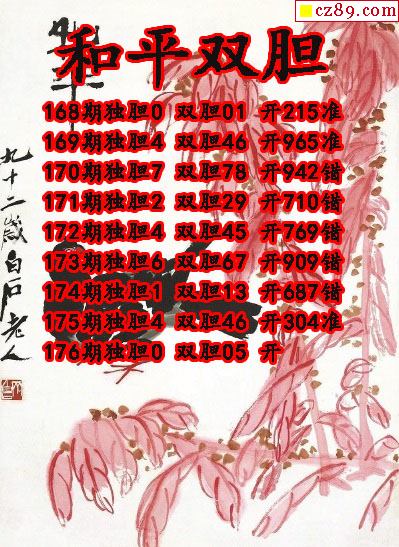 cz89.com
和平双胆
168期独胆0 双胆01 开215准
169期独胆4 双胆46 开965准
170期独胆7 双胆78 开942错
171期独胆2 双胆29 开710错
172期独胆4 双胆45 开769错
173期独胆6 双胆67 开909错
174期独胆1 双胆13 开687错
175期独胆4 双胆46 开304准
176期独胆0 双胆05 开
九十二岁白石老人